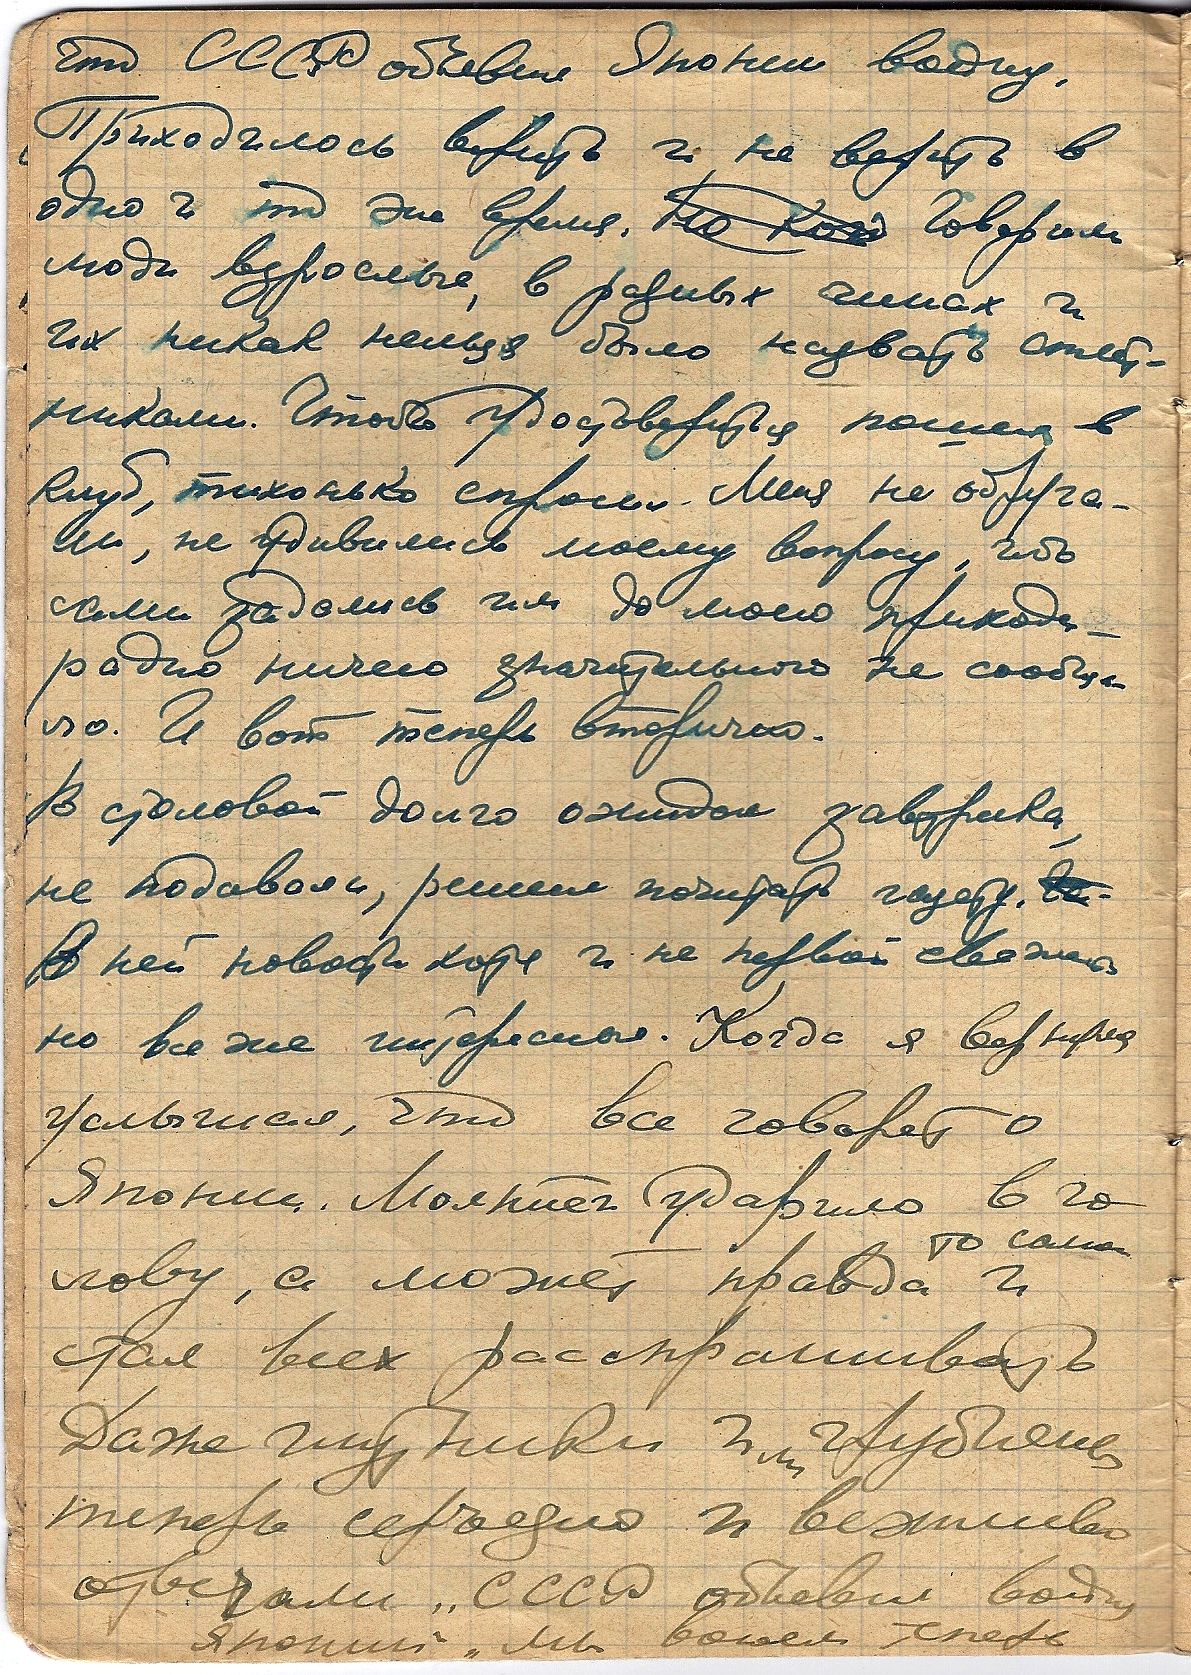 что СССР объявил Японии войну.
Приходилось верить и не верить в
одно и то же время. Но кой Говорили
люди взрослые, в разных чинах и
их никак нельзя было назвать сплет-
никами. Чтобы удостоверится пошел в
клуб, тихонько спросил. Меня не обруга-
ли, не удивились моему вопросу, ибо
сами задались им до моего прихода–
радио ничего значительного не сообщи-
ло. И вот теперь вторично.
В столовой долго ожидал завтрака,
не подавали, решил почитать газету.
В ней новости хотя и не первой свежести
но все же интересные. Когда я вернулся
услышал, что все говорят о
Японии. Молнией ударило в го
лову, а может правда то самое и
стал всех расспрашивать
Даже шутники или грубияны
теперь серьезно и вежливо
отвечали „СССР объявил войну
Японии" „мы воюем теперь